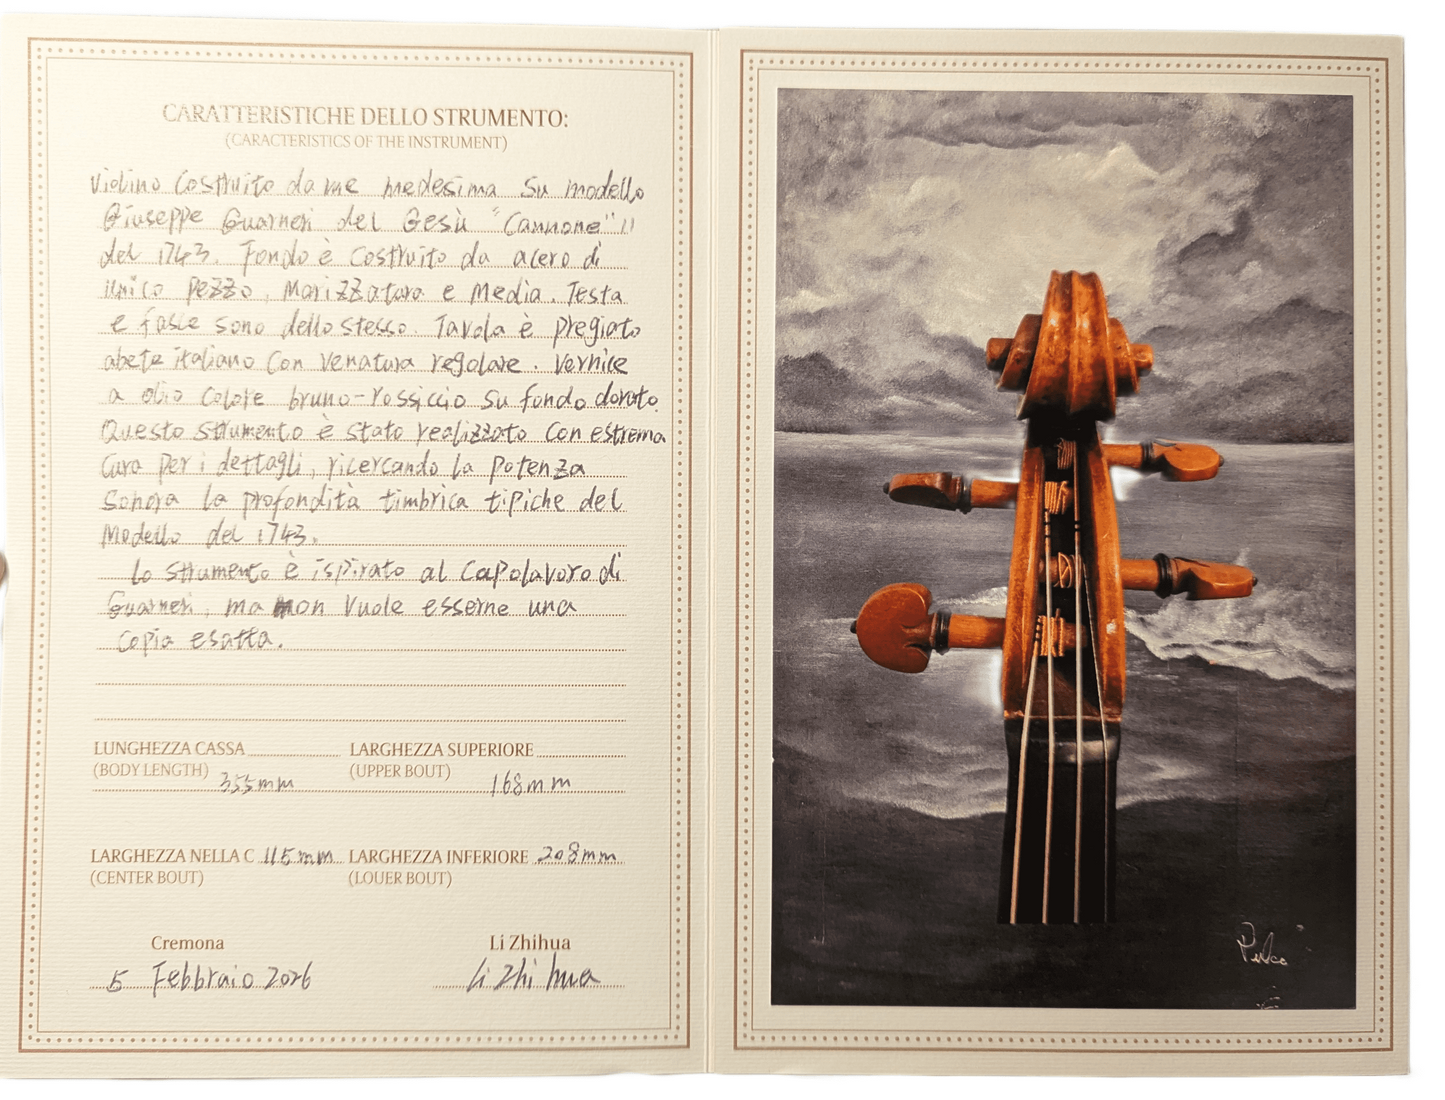 CARATTERISTICHE DELLO STRUMENTO:
(CARACTERISTICS OF THE INSTRUMENT)
Violino Costruito da me medesima su modello
Giuseppe Guarneri del Gesù "Cannone" 11
del 1743. Fondo è costruito da acero di
unico pezzo, Marizzatura e Media. Testa
e fasce sono dello stesso. Tavola è pregiato
abete italiano con venatura regolare. Vernice
a olio colore bruno-rossiccio su fondo dorato.
Questo strumento è stato realizzato con estrema
Cura per i dettagli, ricercando la potenza
sonora la profondità timbrica tipiche del
Modello del 1743.
Lo strumento è ispirato al capolavoro di
Guarneri, ma non vuole esserne una
copia esatta.
LUNGHEZZA CASSA
(BODY LENGTH) 355mm
LARGHEZZA SUPERIORE
(UPPER BOUT) 168mm
LARGHEZZA NELLA C 115mm
(CENTER BOUT)
LARGHEZZA INFERIORE 208mm
(LOUER BOUT)
Cremona
5 Febbraio 2026
Li Zhihua
Li Zhi hua